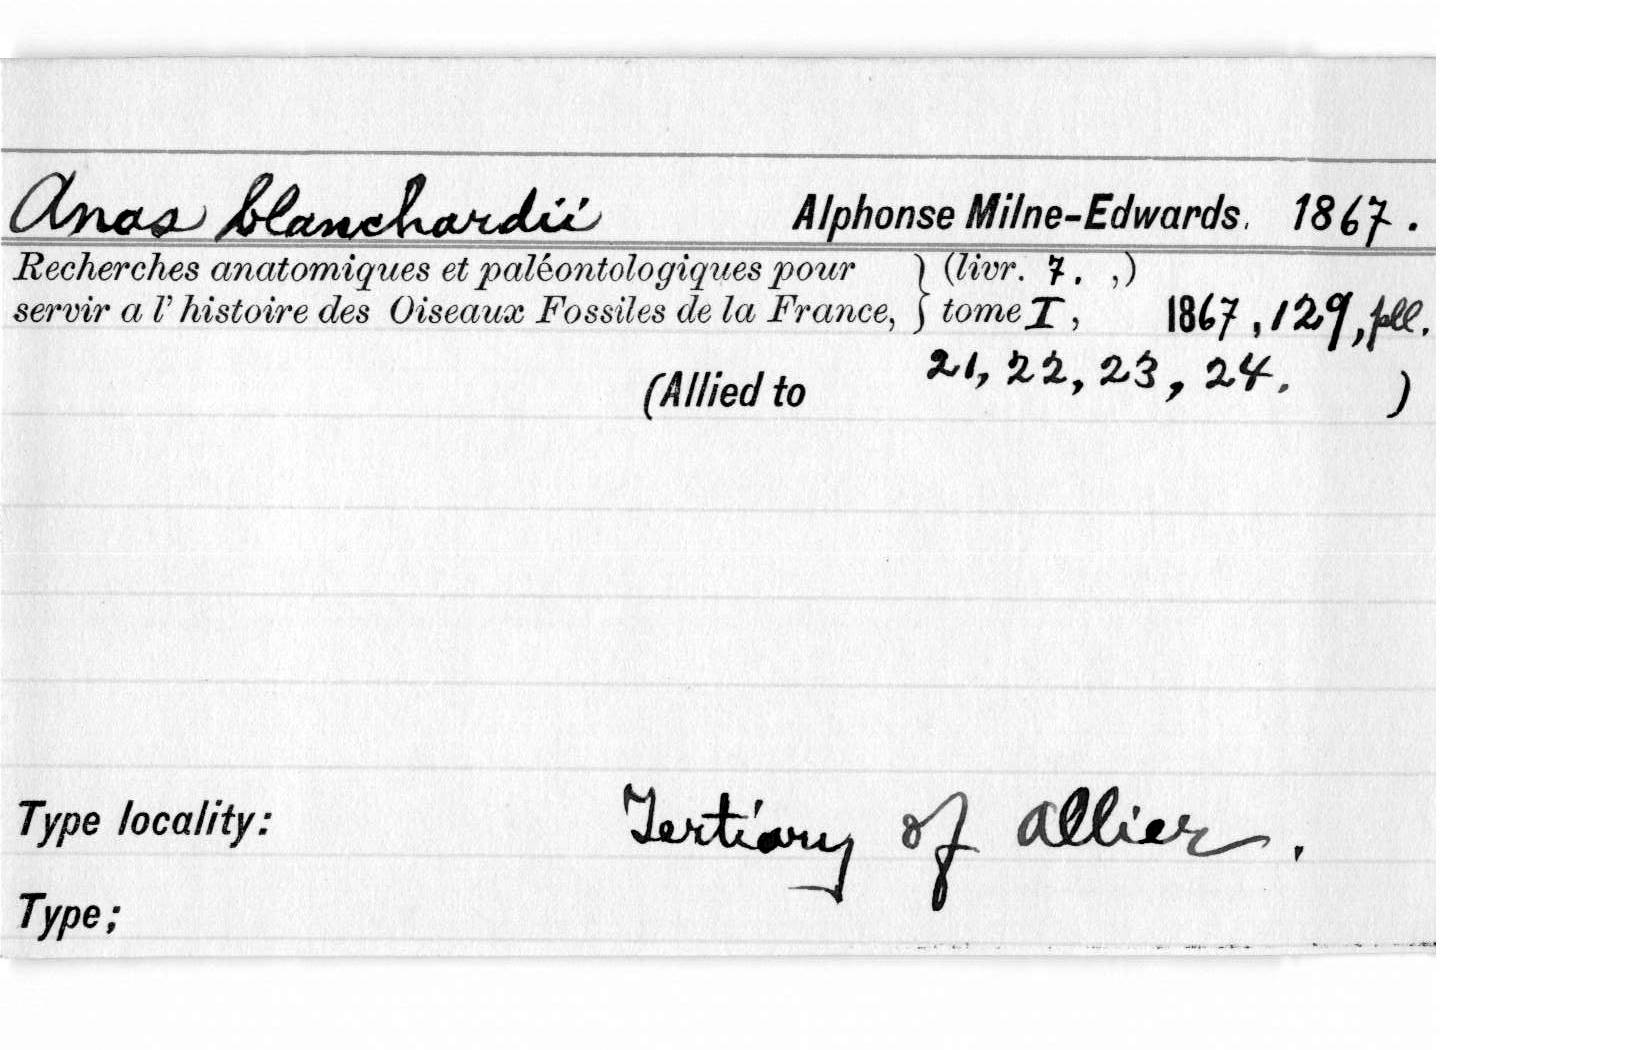 Anas blanchardii Alphonse Milne-Edwards. 1867.
Recherches anatomiques et paléontologiques pour } (livr. 7. ,)
servir a l' histoire des Oiseaux Fossiles de la France, } tome I, 1867, 129, pll.
21, 22, 23, 24.
(Allied to )
Type locality: Tertiary of Allier.
Type;